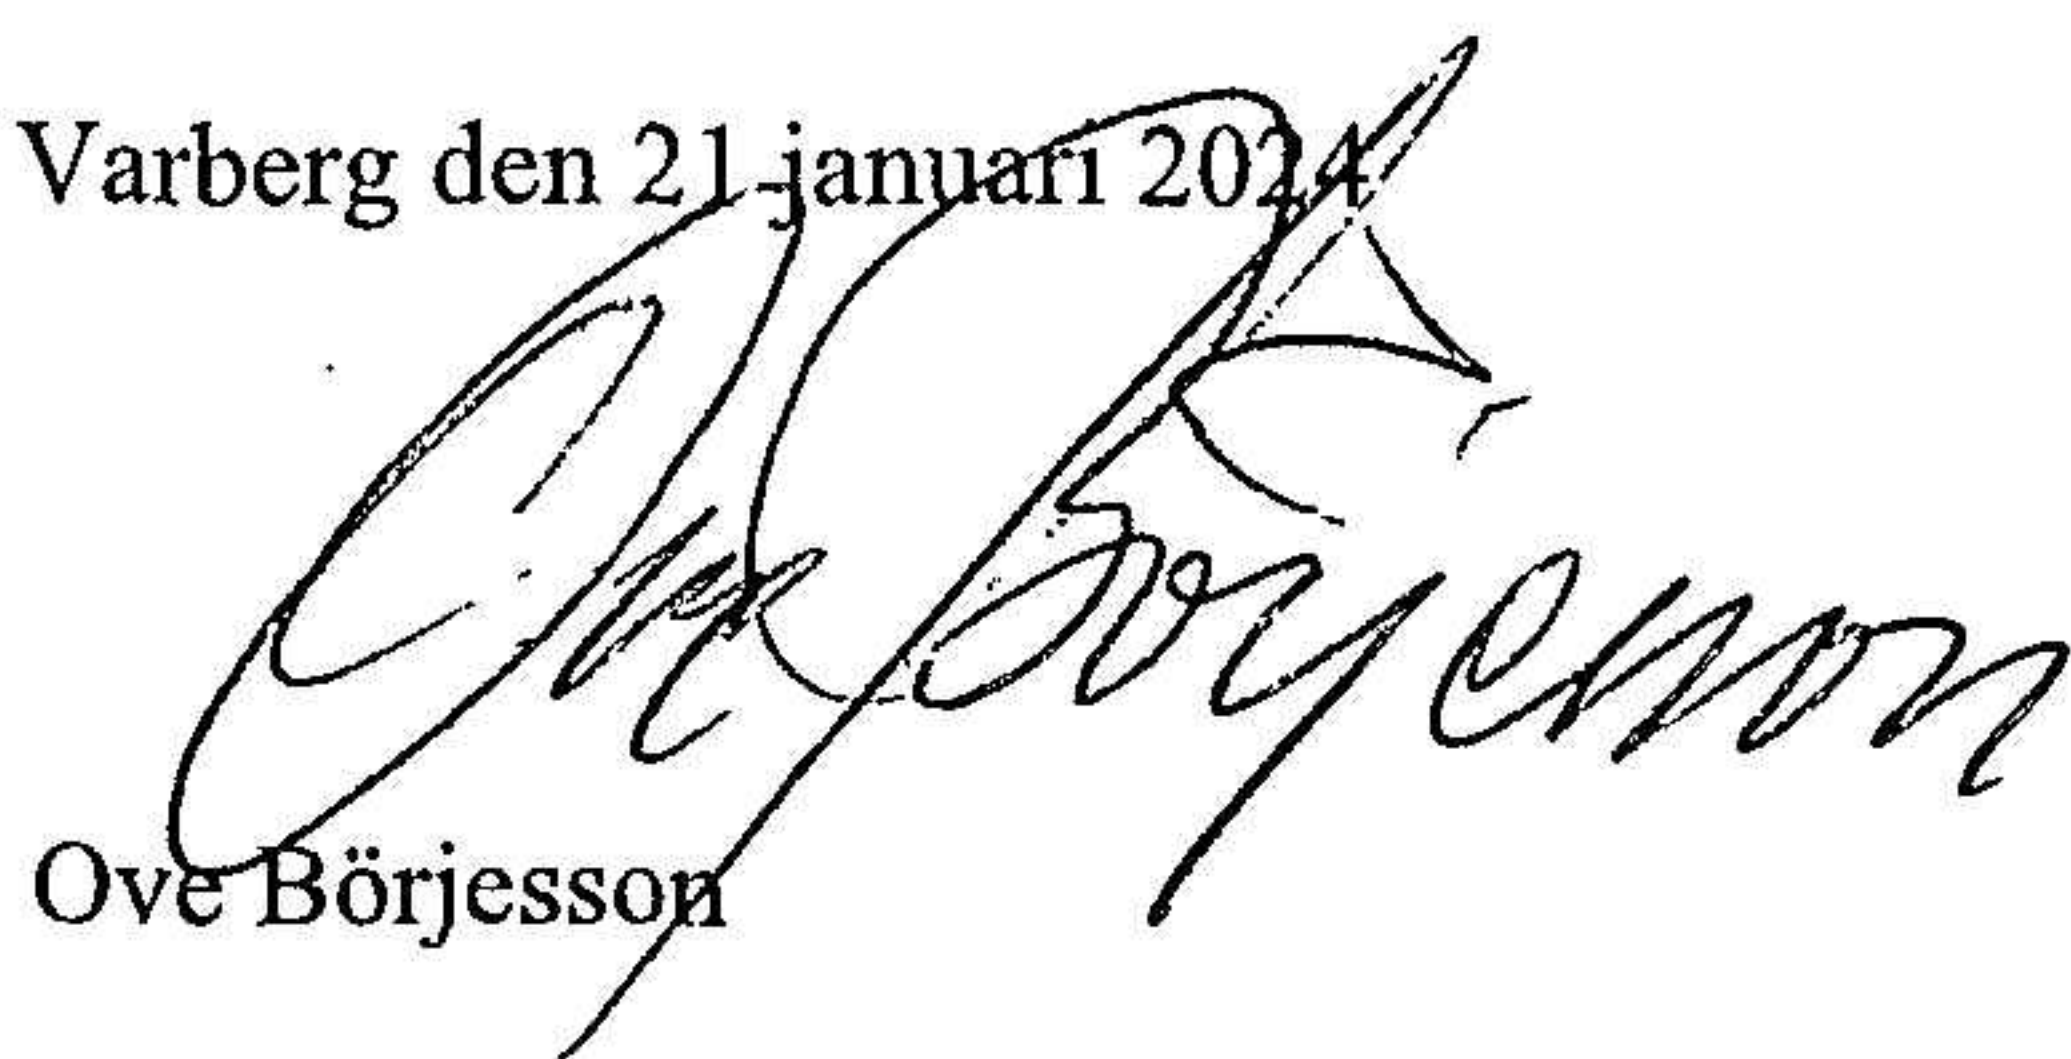 Varberg den 21 januari 2024
Ove Börjesson
Ove Börjesson